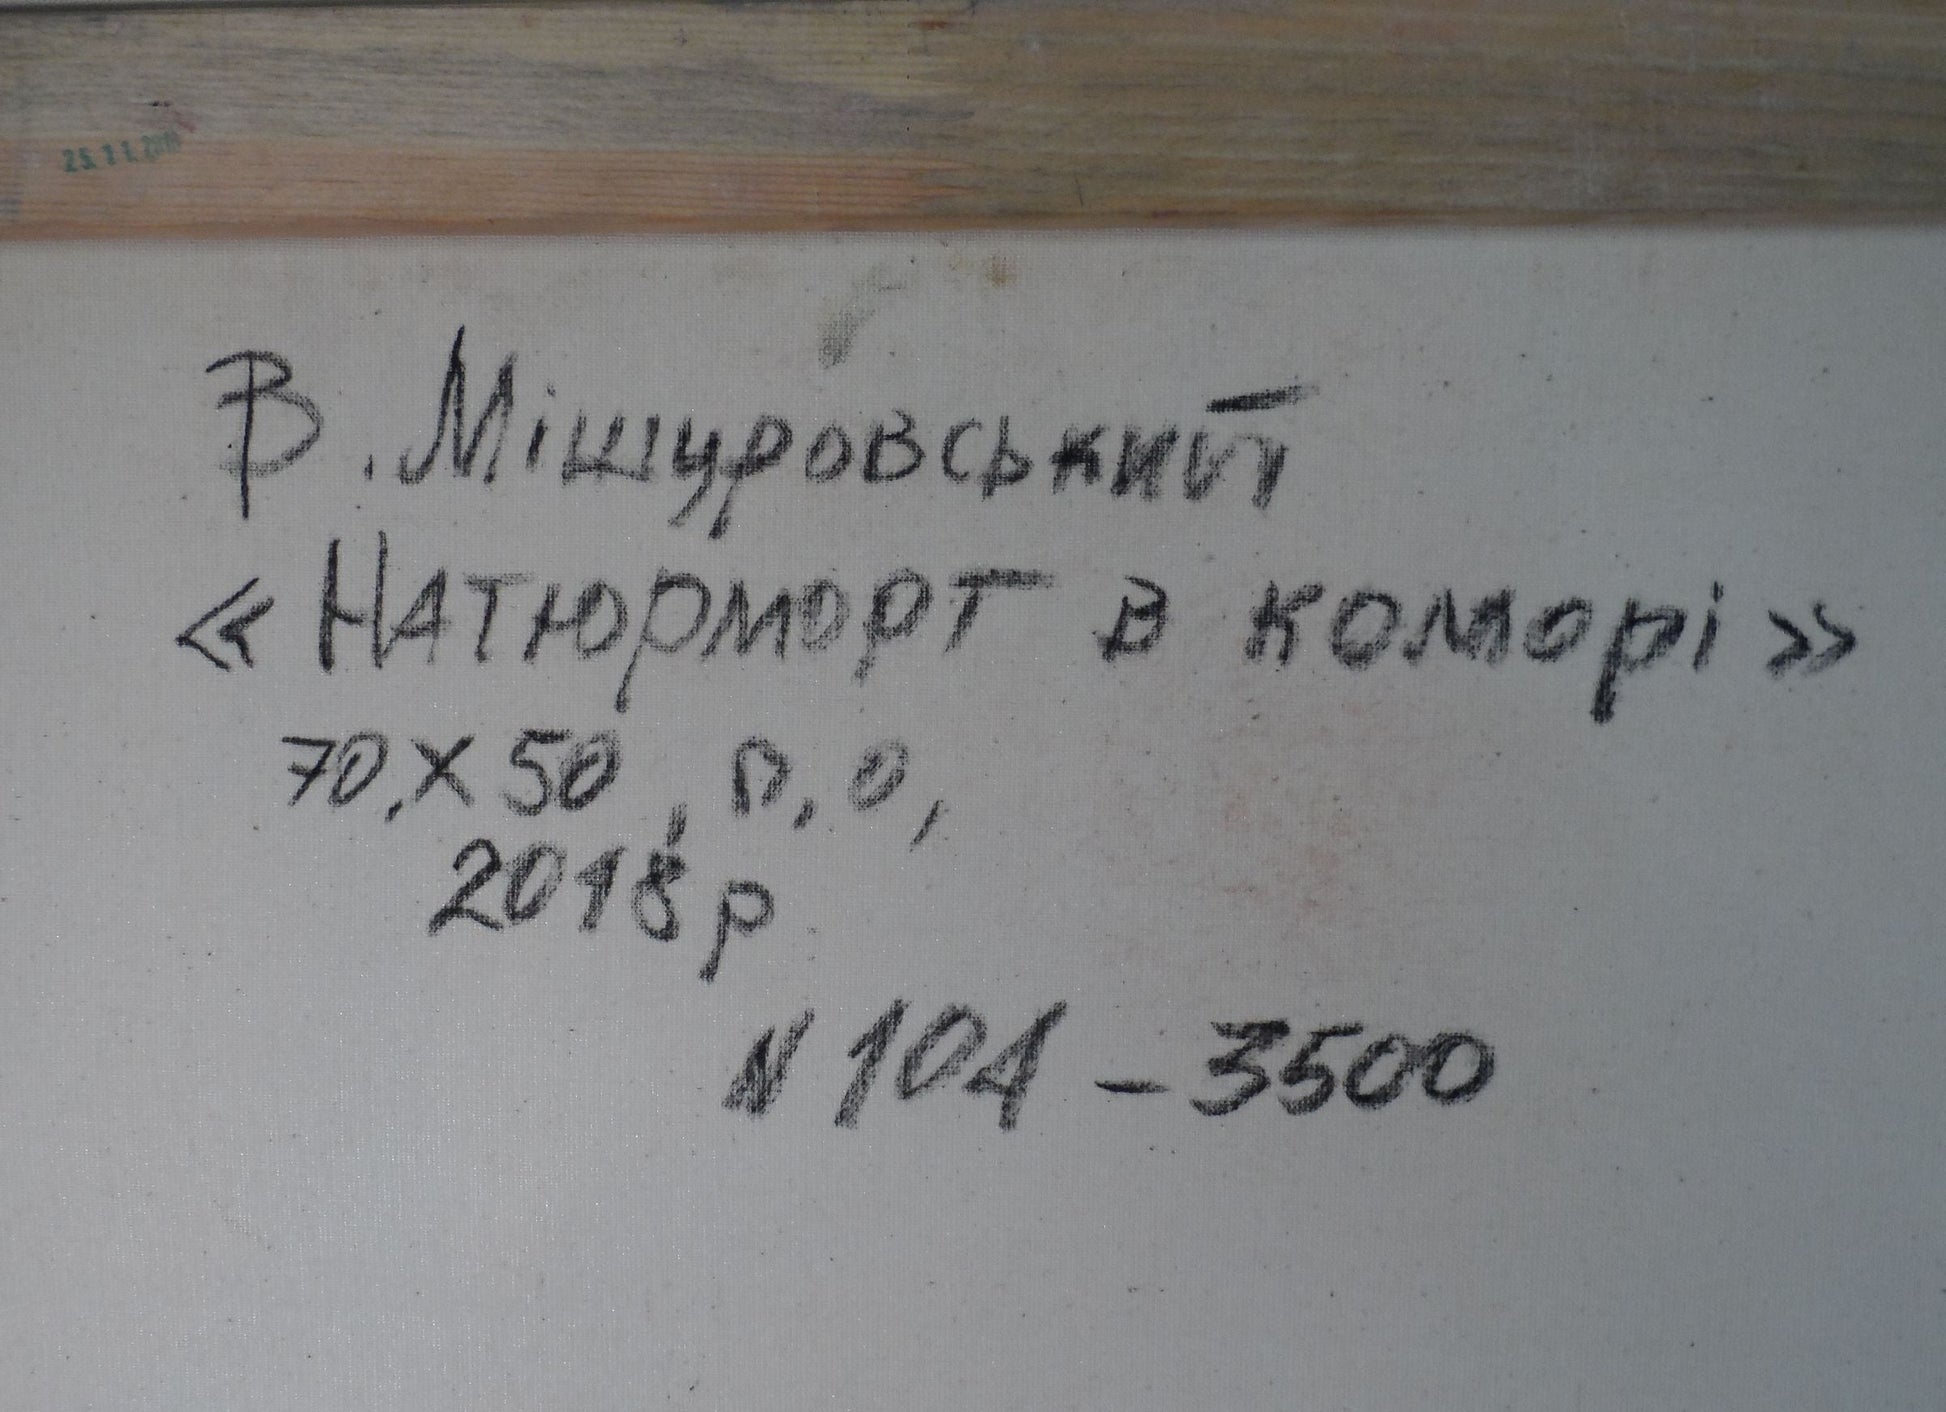 В. Мішуровський
«Натюрморт в коморі»
70.х50, п.о,
2018р
N 104 - 3500